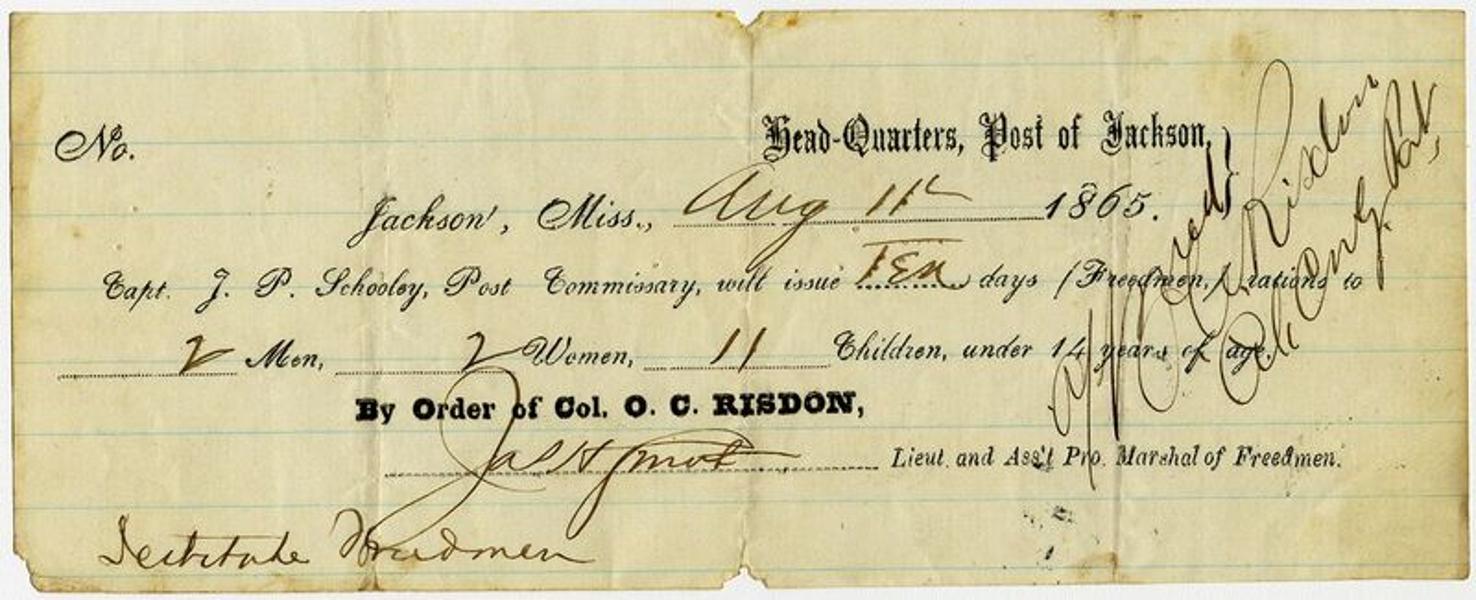 No.
Head-Quarters, Post of Jackson,
Jackson, Miss., Aug 11th 1865.
Capt. J. P. Schooley, Post Commissary, will issue Ten days (Freedmen,) rations to
2 Men, 2 Women, 11 Children, under 14 years of age.
By Order of Col. O. C. RISDON,
Jas H
Lieut. and Ass't Pro. Marshal of Freedmen.
Destitute Freedmen
Approved
O C Risdon
Col Comdg Post